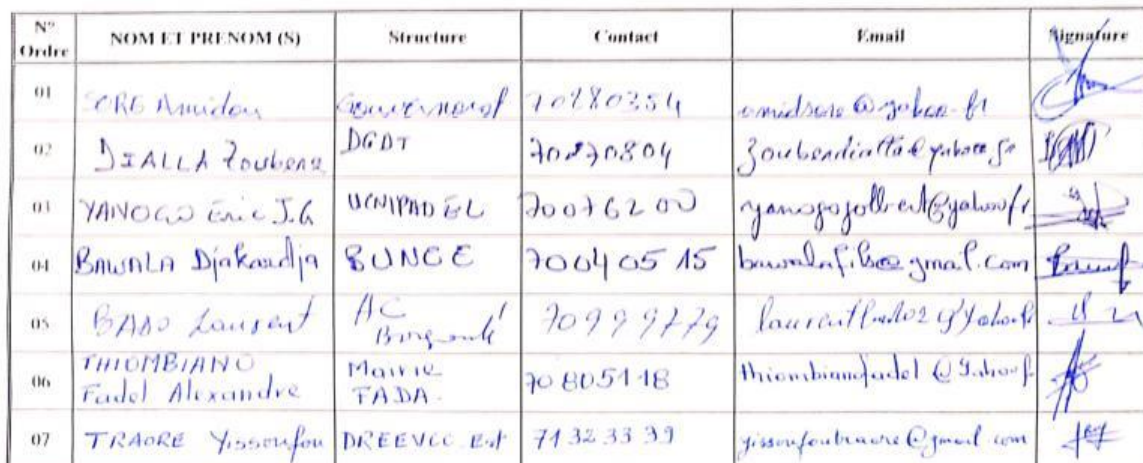 N° Ordre NOM ET PRENOM (S) Structure Contact Email Signature
01 SORE Amidou Gouvernorat 70280354 amidsore@yahoo.fr
02 DIALLA Zoubera DGDT 70270804 zouberdialla@yahoo.fr
03 YANOGO Eric J.G UCNIPADEL 70076200 yanogojolbert@yahoo.fr
04 BAWALA Djakardja BUNCE 70040515 bawalafils@gmail.com
05 BADO Laurent AC 70999779
06 THIOMBIANO Fadel Alexandre Mairie FADA. 70805118 thiombianofadel@Yahoo.f
07 TRAORE Yissoufou DREEVCC Est 71323339 yissoufoutraore@gmail.com